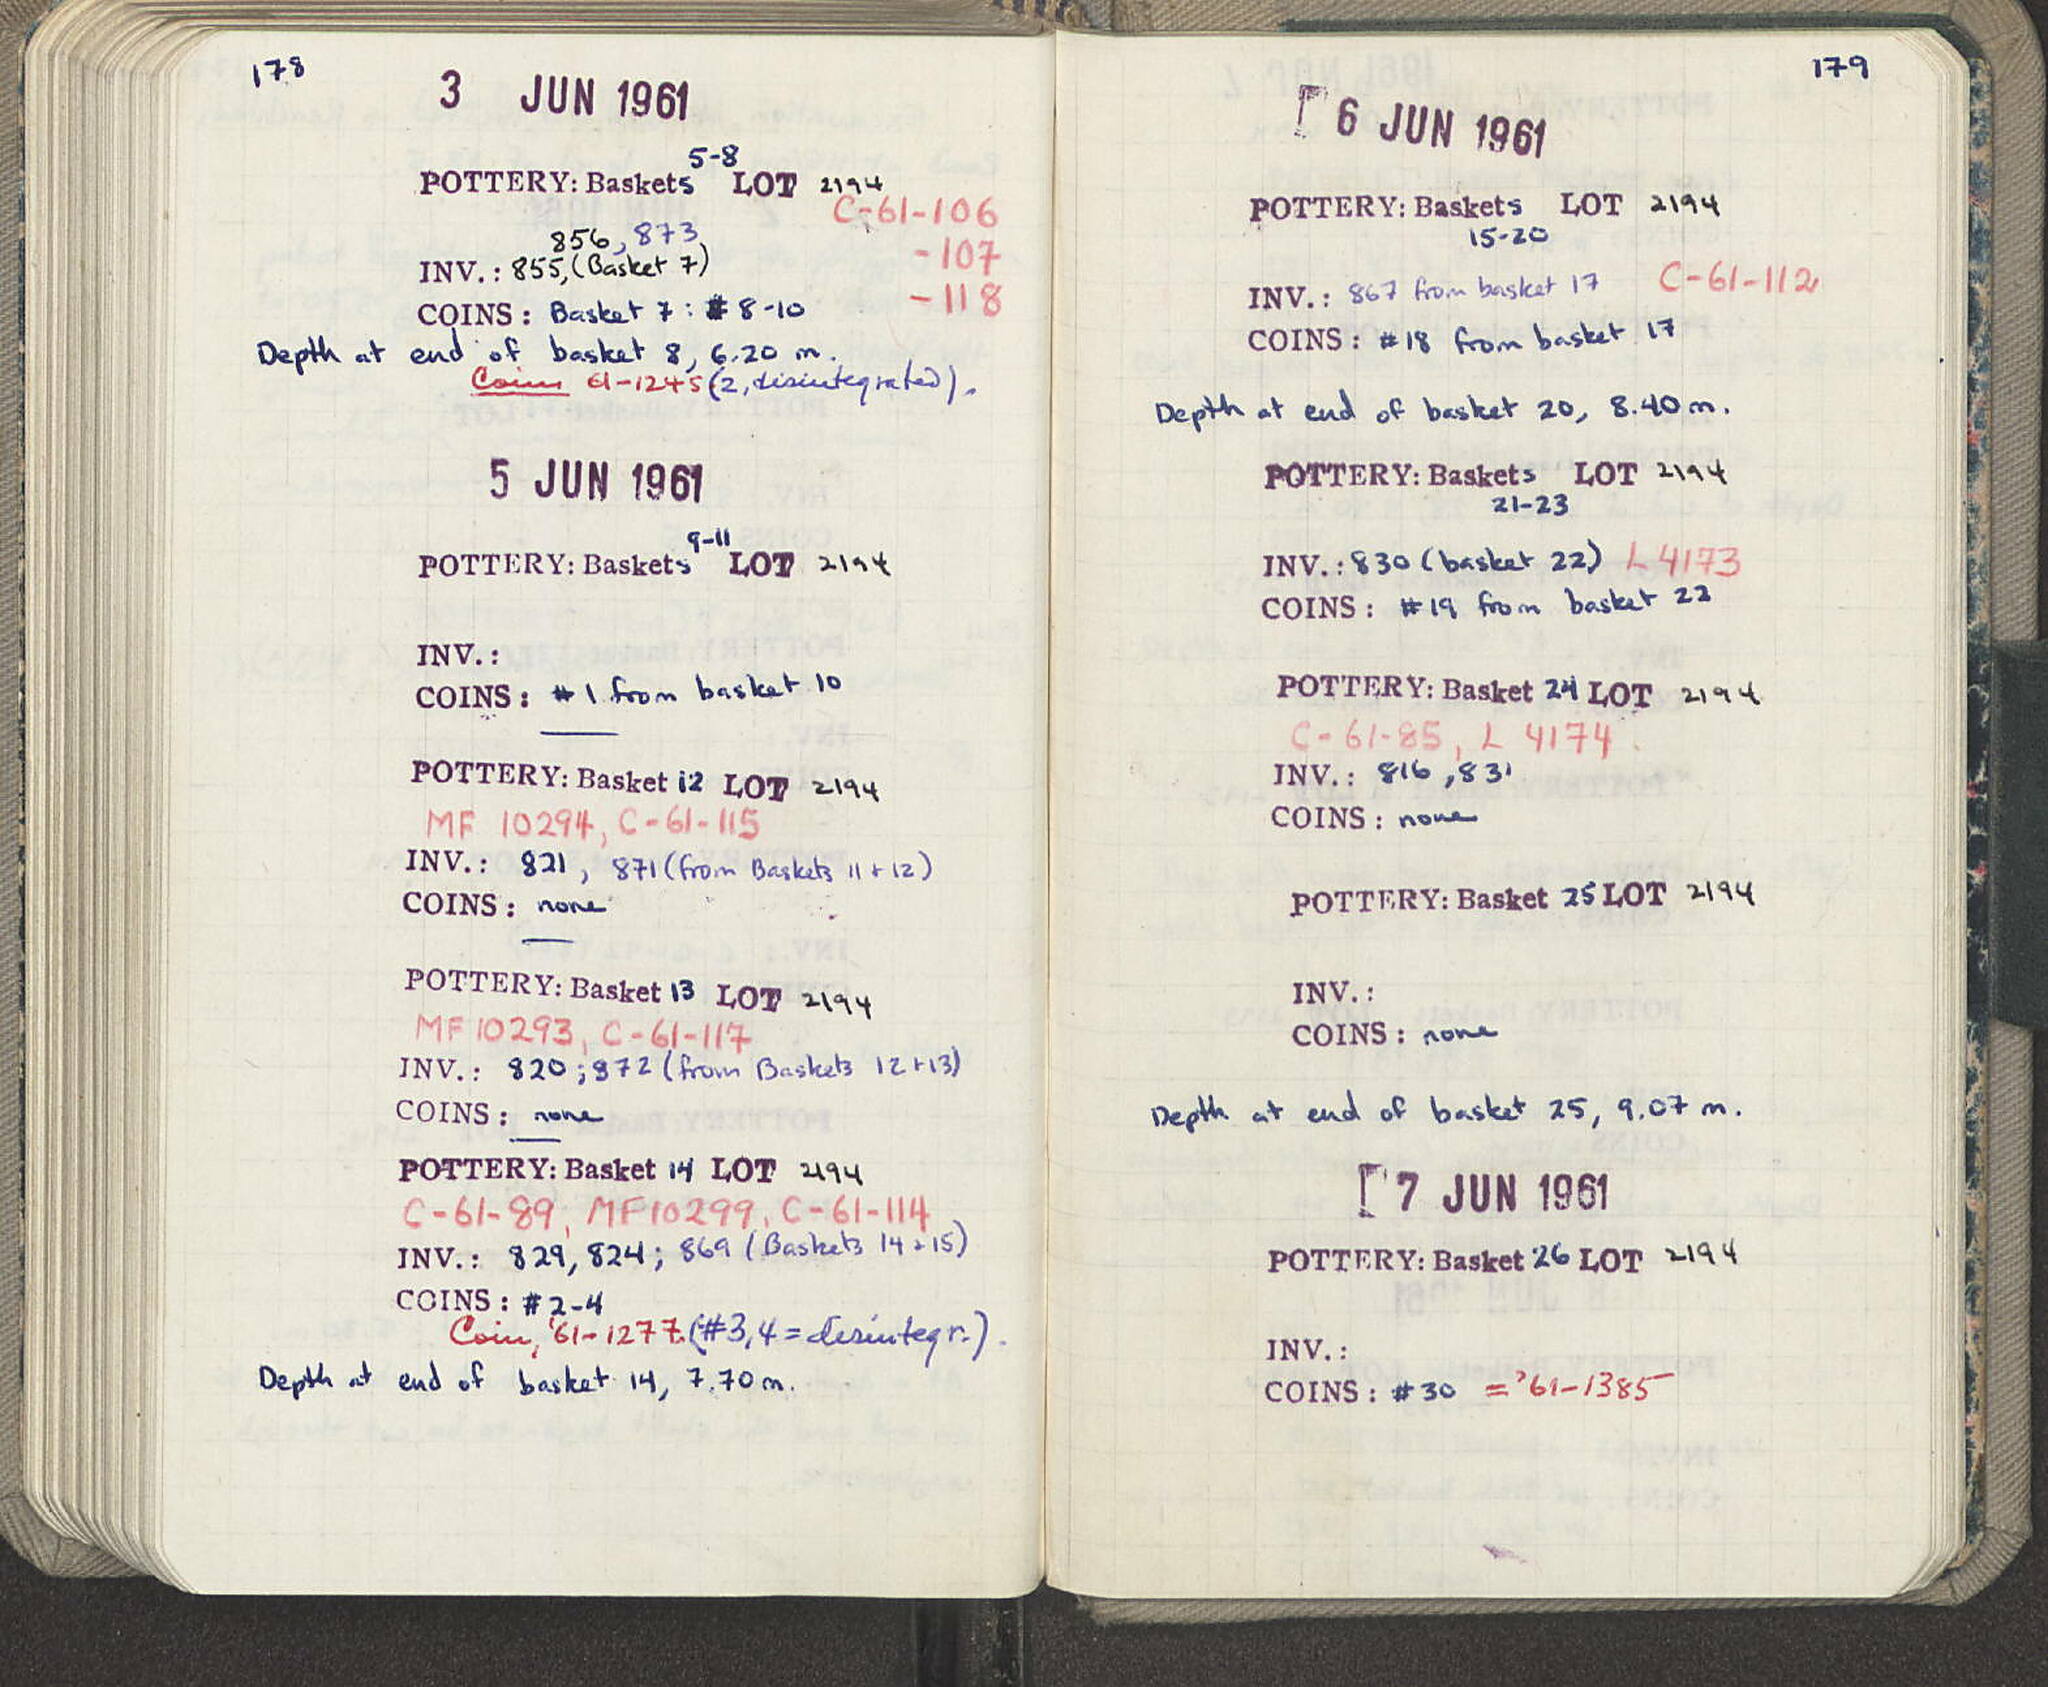 178
3 JUN 1961
5-8
POTTERY: Baskets LOT 2194
C-61-106
856, 873
-107
INV.: 855, (Basket 7)
-118
COINS: Basket 7: #8-10
Depth at end of basket 8, 6.20 m.
Coins 61-1245 (2, disintegrated).
5 JUN 1961
9-11
POTTERY: Baskets LOT 2194
INV.:
COINS: #1 from basket 10
POTTERY: Basket 12 LOT 2194
MF 10294, C-61-115
INV.: 821, 871 (from Baskets 11+12)
COINS: none
POTTERY: Basket 13 LOT 2194
MF 10293, C-61-117
INV.: 820; 872 (from Baskets 12+13)
COINS: none
POTTERY: Basket 14 LOT 2194
C-61-89, MF10299, C-61-114
INV.: 829, 824; 869 (Baskets 14+15)
COINS: #2-4
Coin, '61-1277 (#3,4=disintegr.).
Depth at end of basket 14, 7.70 m.
179
6 JUN 1961
POTTERY: Baskets LOT 2194
15-20
INV.: 867 from basket 17 C-61-112
COINS: #18 from basket 17
Depth at end of basket 20, 8.40 m.
POTTERY: Baskets LOT 2194
21-23
INV.: 830 (basket 22) L 4173
COINS: #19 from basket 22
POTTERY: Basket 24 LOT 2194
C-61-85, L 4174.
INV.: 816, 831
COINS: none
POTTERY: Basket 25 LOT 2194
INV.:
COINS: none
Depth at end of basket 25, 9.07 m.
7 JUN 1961
POTTERY: Basket 26 LOT 2194
INV.:
COINS: #30 = '61-1385